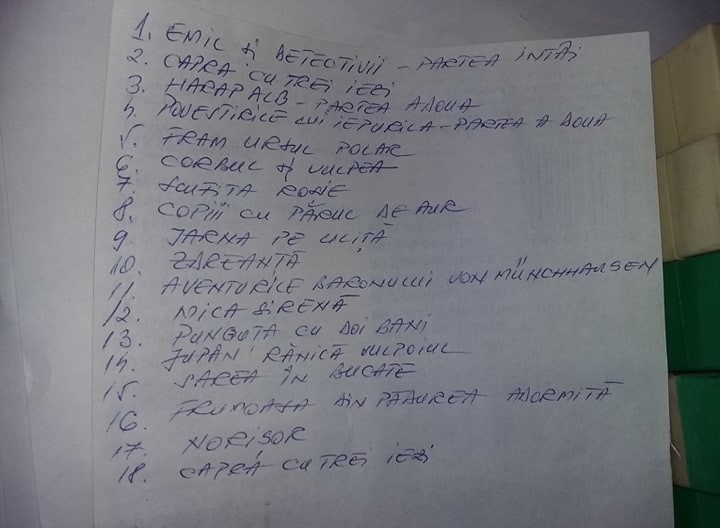 1. EMIL și DETECTIVII - PARTEA ÎNTÂI
2. CAPRA CU TREI IEZI
3. HARAP ALB - PARTEA A DOUA
4. POVESTIRILE LUI IEPURILĂ - PARTEA A DOUA
5. FRAM URSUL POLAR
6. CORBUL și VULPEA
7. SCUFIȚA ROȘIE
8. COPIII CU PĂRUL DE AUR
9. IARNA PE ULIȚĂ
10. ZDREANȚĂ
11. AVENTURILE BARONULUI VON MÜNCHHAUSEN
12. MICA SIRENĂ
13. PUNGUȚA CU DOI BANI
14. JUPÂN RĂNICĂ VULPOIUL
15. SAREA ÎN BUCATE
16. FRUMOASA DIN PĂDUREA ADORMITĂ
17. NORIȘOR
18. CAPRA CU TREI IEZI